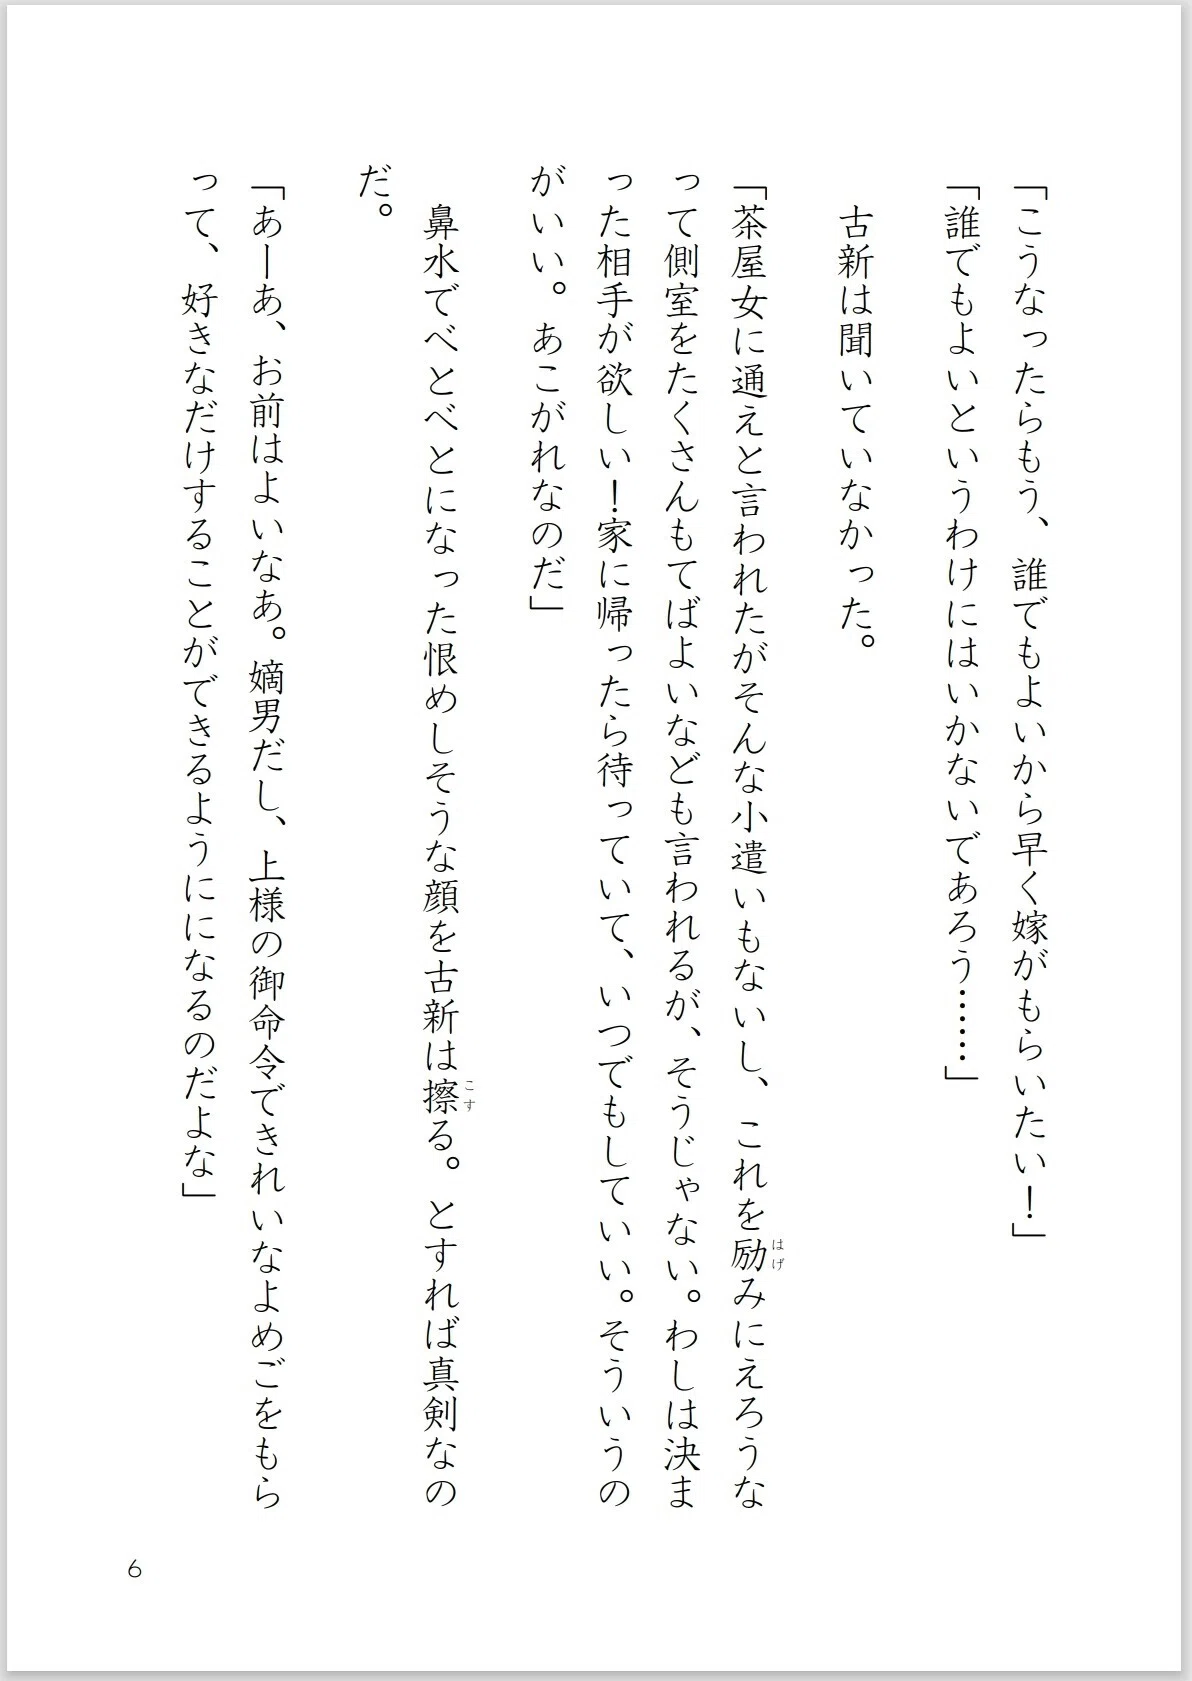 「こうなったらもう、誰でもよいから早く嫁がもらいたい！」
「誰でもよいというわけにはいかないであろう……」
古新は聞いていなかった。
「茶屋女に通えと言われたがそんな小遣いもないし、これを励みにえろうな
はげ
って側室をたくさんもてばよいなども言われるが、そうじゃない。わしは決ま
った相手が欲しい！家に帰ったら待っていて、いつでもしていい。そういうの
がいい。あこがれなのだ」
鼻水でべとべとになった恨めしそうな顔を古新は擦る。とすれば真剣なの
こす
だ。
「あーあ、お前はよいなあ。嫡男だし、上様の御命令できれいなよめごをもら
って、好きなだけすることができるようにになるのだよな」
6